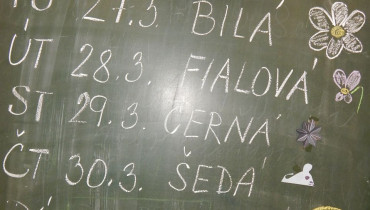 27.3. BÍLÁ
ÚT 28.3. FIALOVÁ
ST 29.3. ČERNÁ
ČT 30.3. ŠEDÁ